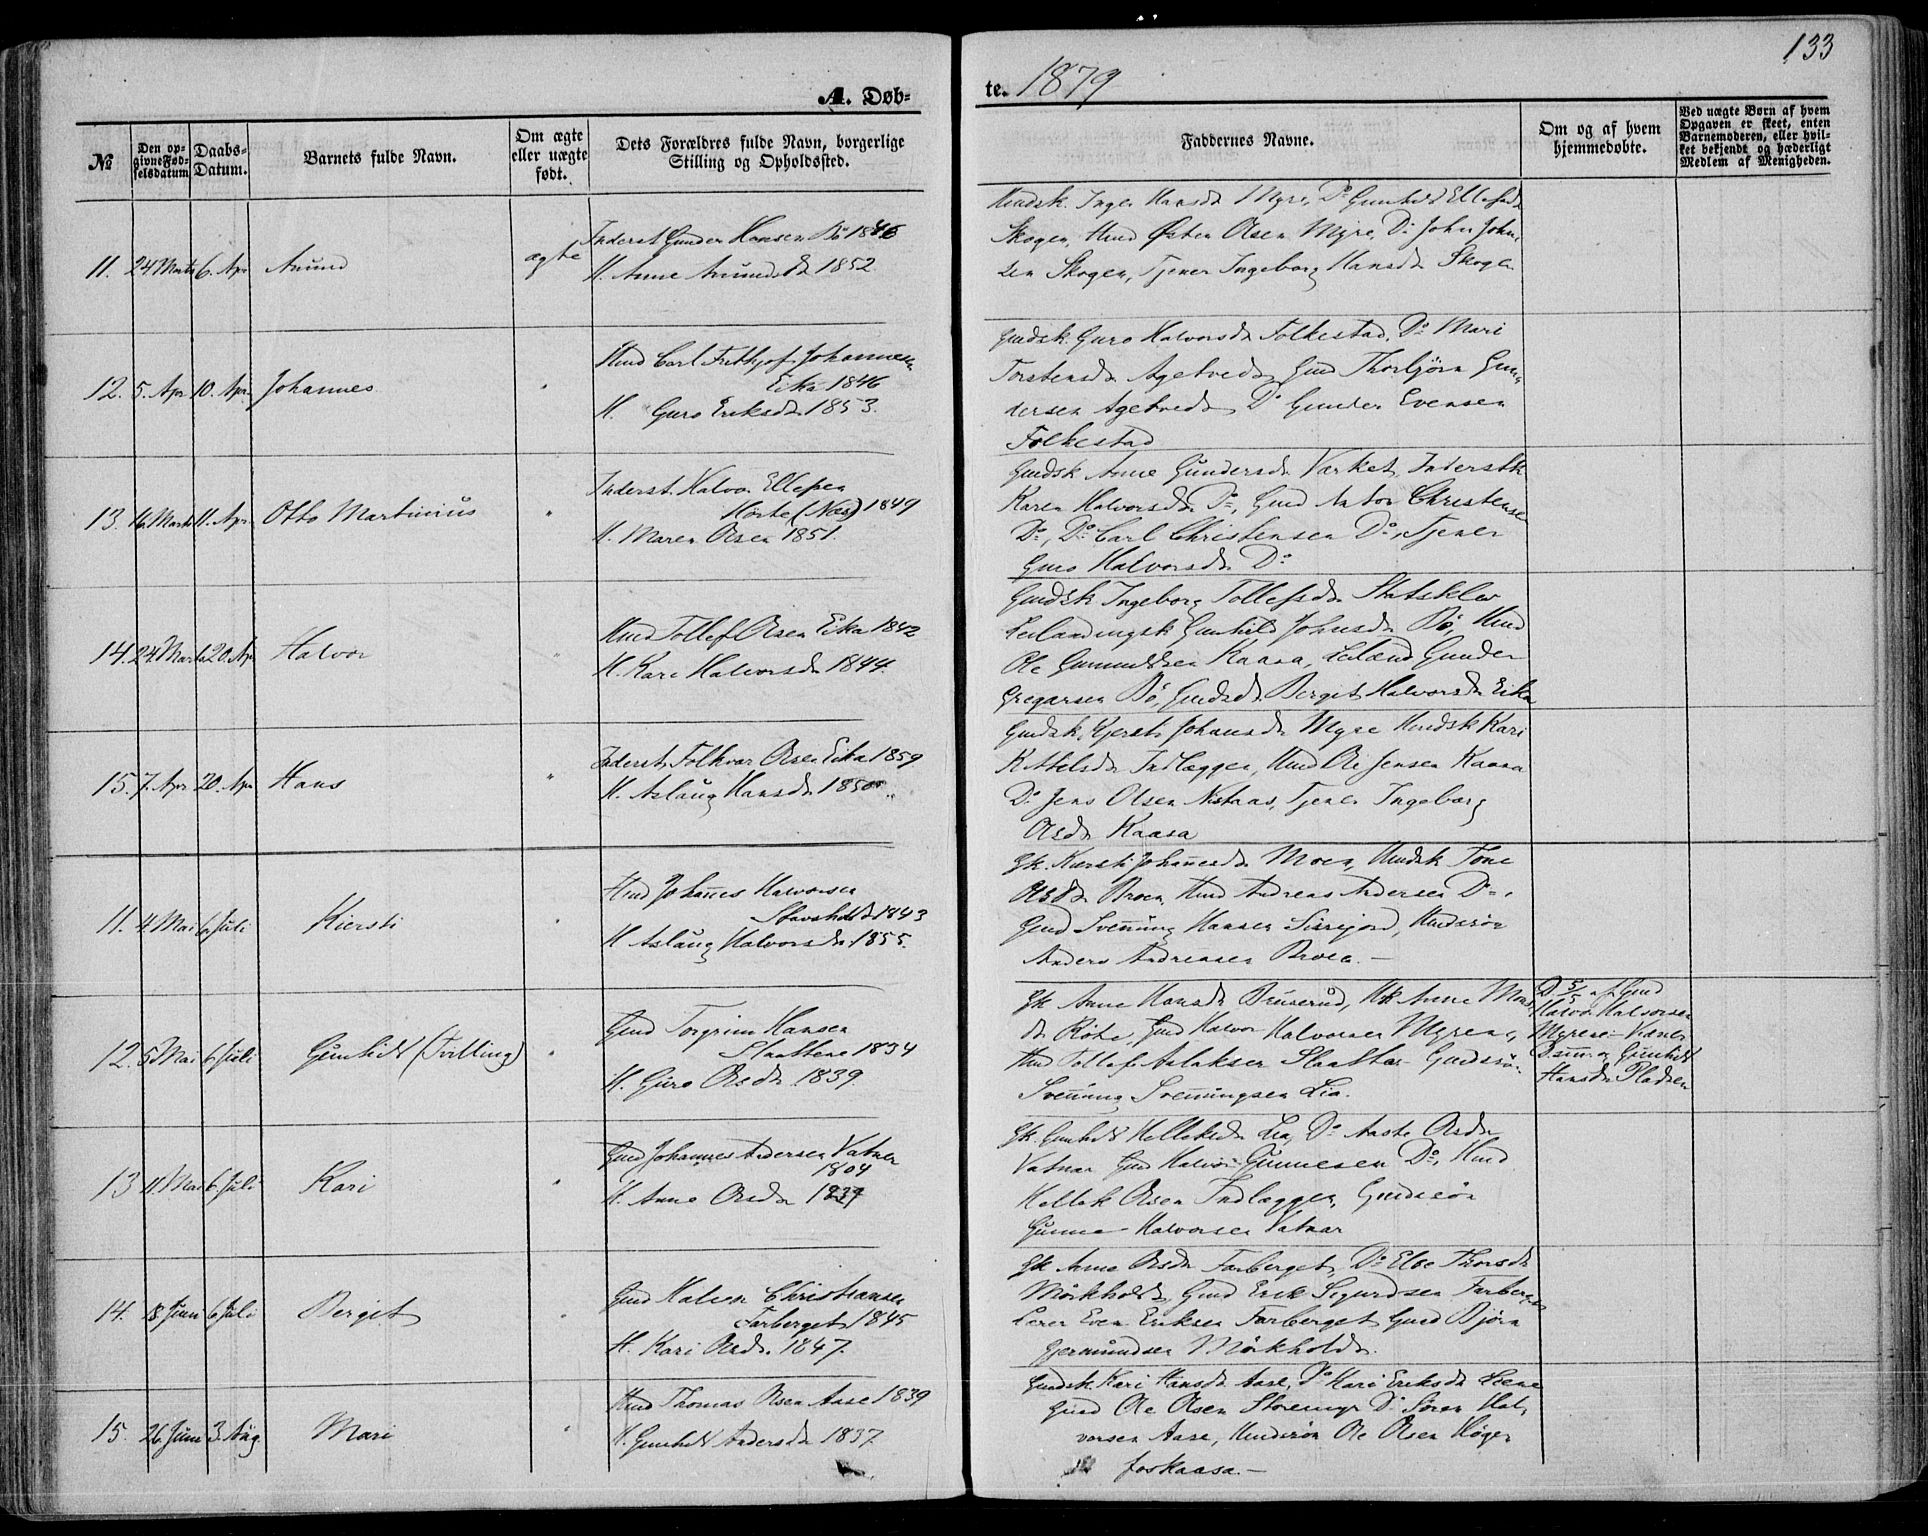 133
A. Døb-
te. 1879
№
Den op-
givne Fød-
selsdatum
Daabs-
Datum.
Barnets fulde Navn.
Om ægte
eller uægte
født.
Dets Forældres fulde Navn, borgerlige
Stilling og Opholdssted.
Faddernes Navne.
Om og af hvem
hjemmedøbte.
Ved uægte Børn af hvem
Opgaven er skeet, enten
Barnemoderen, eller hvil-
ket bekjendt og hæderligt
Medlem af Menigheden.
11. 24 Marts 6. Apr Anund ægte
Inderst Gunder Hansen Bö 1846
H. Anne Anundsd 1852.
Hmdsk. Inger Hansd Myre, Do Gunhild Ellefsd
Skogen, Hmd Østen Olsen Myre, Do John John-
sen Skogen, Tjener Ingeborg Hansd Skogen
12. 5. Apr 10. Apr Johannes "
Hmd Carl Frithjof Johannesen
Eika 1846
H. Guro Eriksd 1853.
Gmdsk. Guro Halvorsd Folkestad, Do Mari
Torstensd Agetveds Gmd Thorbjörn Gun-
dersen Agetveds Do Gunder Evensen
Folkestad
13. 16. Marts 11. Apr. Otto Martinius "
Inderst. Halvor Ellefsen
Hørte (Næs) 1849
H. Maren Olsen 1851.
Gmdsk Anne Gundersd Værket, Inderstk
Karen Halvorsd Do, Gmd Anton Christensen
Do, Do Carl Christensen Do, Tjener
Guro Halvorsd Do
14. 24. Marts 20. Apr Halvor "
Hmd Tollef Olsen Eika 1842
H. Kari Halvorsd 1844.
Gmdsk Ingeborg Tollefsd Statsklev
Leilændingsk Gunhild Johnsd Bö, Hmd
Ole Gunnuldsen Kaasa, Leilænd Gunder
Gregarsen Bö, Gmdsd. Berget Halvorsd Eika
15. 7. Apr 20. Apr Hans "
Inderst. Folkvar Olsen Eika 1859
H. Aslaug Hansd 1850.
Gmdsk. Kjersti Johansd Myre Hmdsk Kari
Kittelsd Indlæggen, Hmd Ole Jensen Kaasa
Do Jens Olsen Nistaas, Tjener Ingeborg
Olsd Kaasa
11. 4 Mai 6 Juli Kiersti "
Hmd Johannes Halvorsen
Stavsholt 1843
H Aslaug Halvorsd 1855.
Gk. Kiersti Johannesd Moen, Hmdsk Tone
Olsd Broen, Hmd Andreas Andersen Do,
Gmd Svenning Hansen Sisrejord, Hmdssön
Anders Andreasen Broen. -
12. 5 Mai 6 Juli Gunhild (Tvilling) "
Gmd Torgrim Hansen
Slaattene 1834
H. Guro Olsd 1839.
Gk Anne Hansd Bruserud, Hk Anne Mons-
d Rote, Gmd Halvor Halvorsen Myrene,
Hmd Tollef Aslaksen Slaatta - Gmdssön
Svenning Svenningsen Lia.
D. 5/5 af Gmd
Halvor Halvorsen
Myrene Vidner
Gunhild
Hansd Pladsen
13 11. Mai 6. Juli Kari "
Gmd Johannes Andersen Vatnar
1804
H. Anne Olsd 1839
Gk. Gunhild Helleksd Lia, Do Aaste Olsd
Vatnar Gmd Halvor Gunnesen Do, Hmd
Hellek Olsen Indlæggen, Gmdssön
Gunne Halvorsen Vatnar
14. 18 Juni 6 Juli Bergit "
Gmd Halvor Christiansen
Farberget 1845
H. Kari Olsd. 1847.
Gk Anne Olsd Farberget, Do Elve Thorsd
Mörkholt, Gmd Erik Sigurdsen Farberget
Lærer Even Eriksen Farberget Gmd Björn
Gjermundsen Mörkhold.
15. 26. Juni 3. Aug. Mari "
Hmd Thomas Olsen Aase 1839
H. Gunhild Andersd 1837.
Gmdsk. Kari Hansd Aase, Do Kari Eriksd Liene
Gmd Ole Olsen Storemyr Do Sören Hal-
vorsen Aase, Hmdssön Ole Olsen Höge-
foskaasa. -